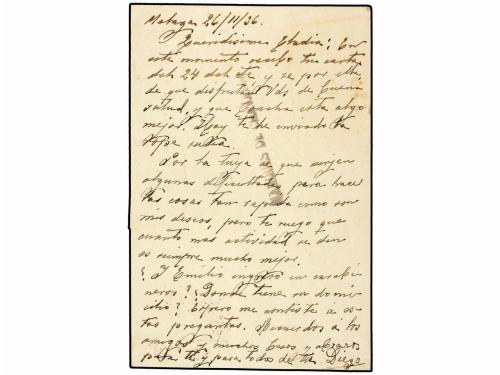 Malaga 26/11/36.
Queridisima Eladia: En
este momento recibo tu carta
del 24 del cte y se por ella
de que disfrutáis Vds de buena
salud, y que esta algo
mejor. Hoy te he enviado la
ropa sucia.
Por la tuya se que surjen
algunas dificultades para hacer
las cosas tan rapida como son
mis deseos, pero te ruego que
cuanto mas actividad se den
es siempre mucho mejor.
¿Y Emilio ingreso en carabi-
neros? ¿Donde tiene su domi-
cilio? Espero me conteste a es-
tas preguntas. Recuerdos a los
amigos y muchos besos y abrazos
para ti y para todos de tu Diego